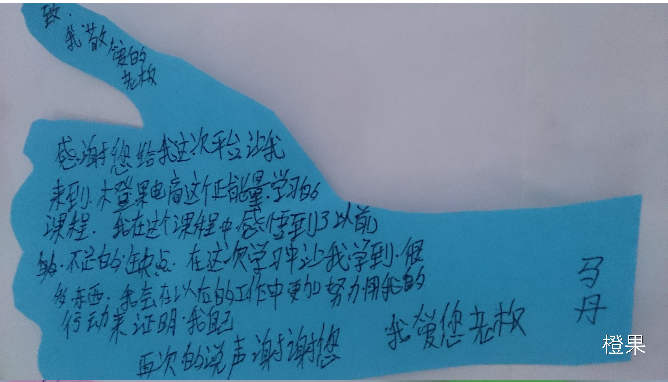 致.
我敬爱的
老板
感谢您给我这次平台让我
来到.木登果电商这个正能量.学习的
课程.我在这个课程中感悟到了以前
不足的缺点.在这次学习中让我学到.很
多东西.我会在以后的工作中更加努力用我的
行动来证明.我自己
再次的说声谢谢您
我爱您老板
马丹
橙果